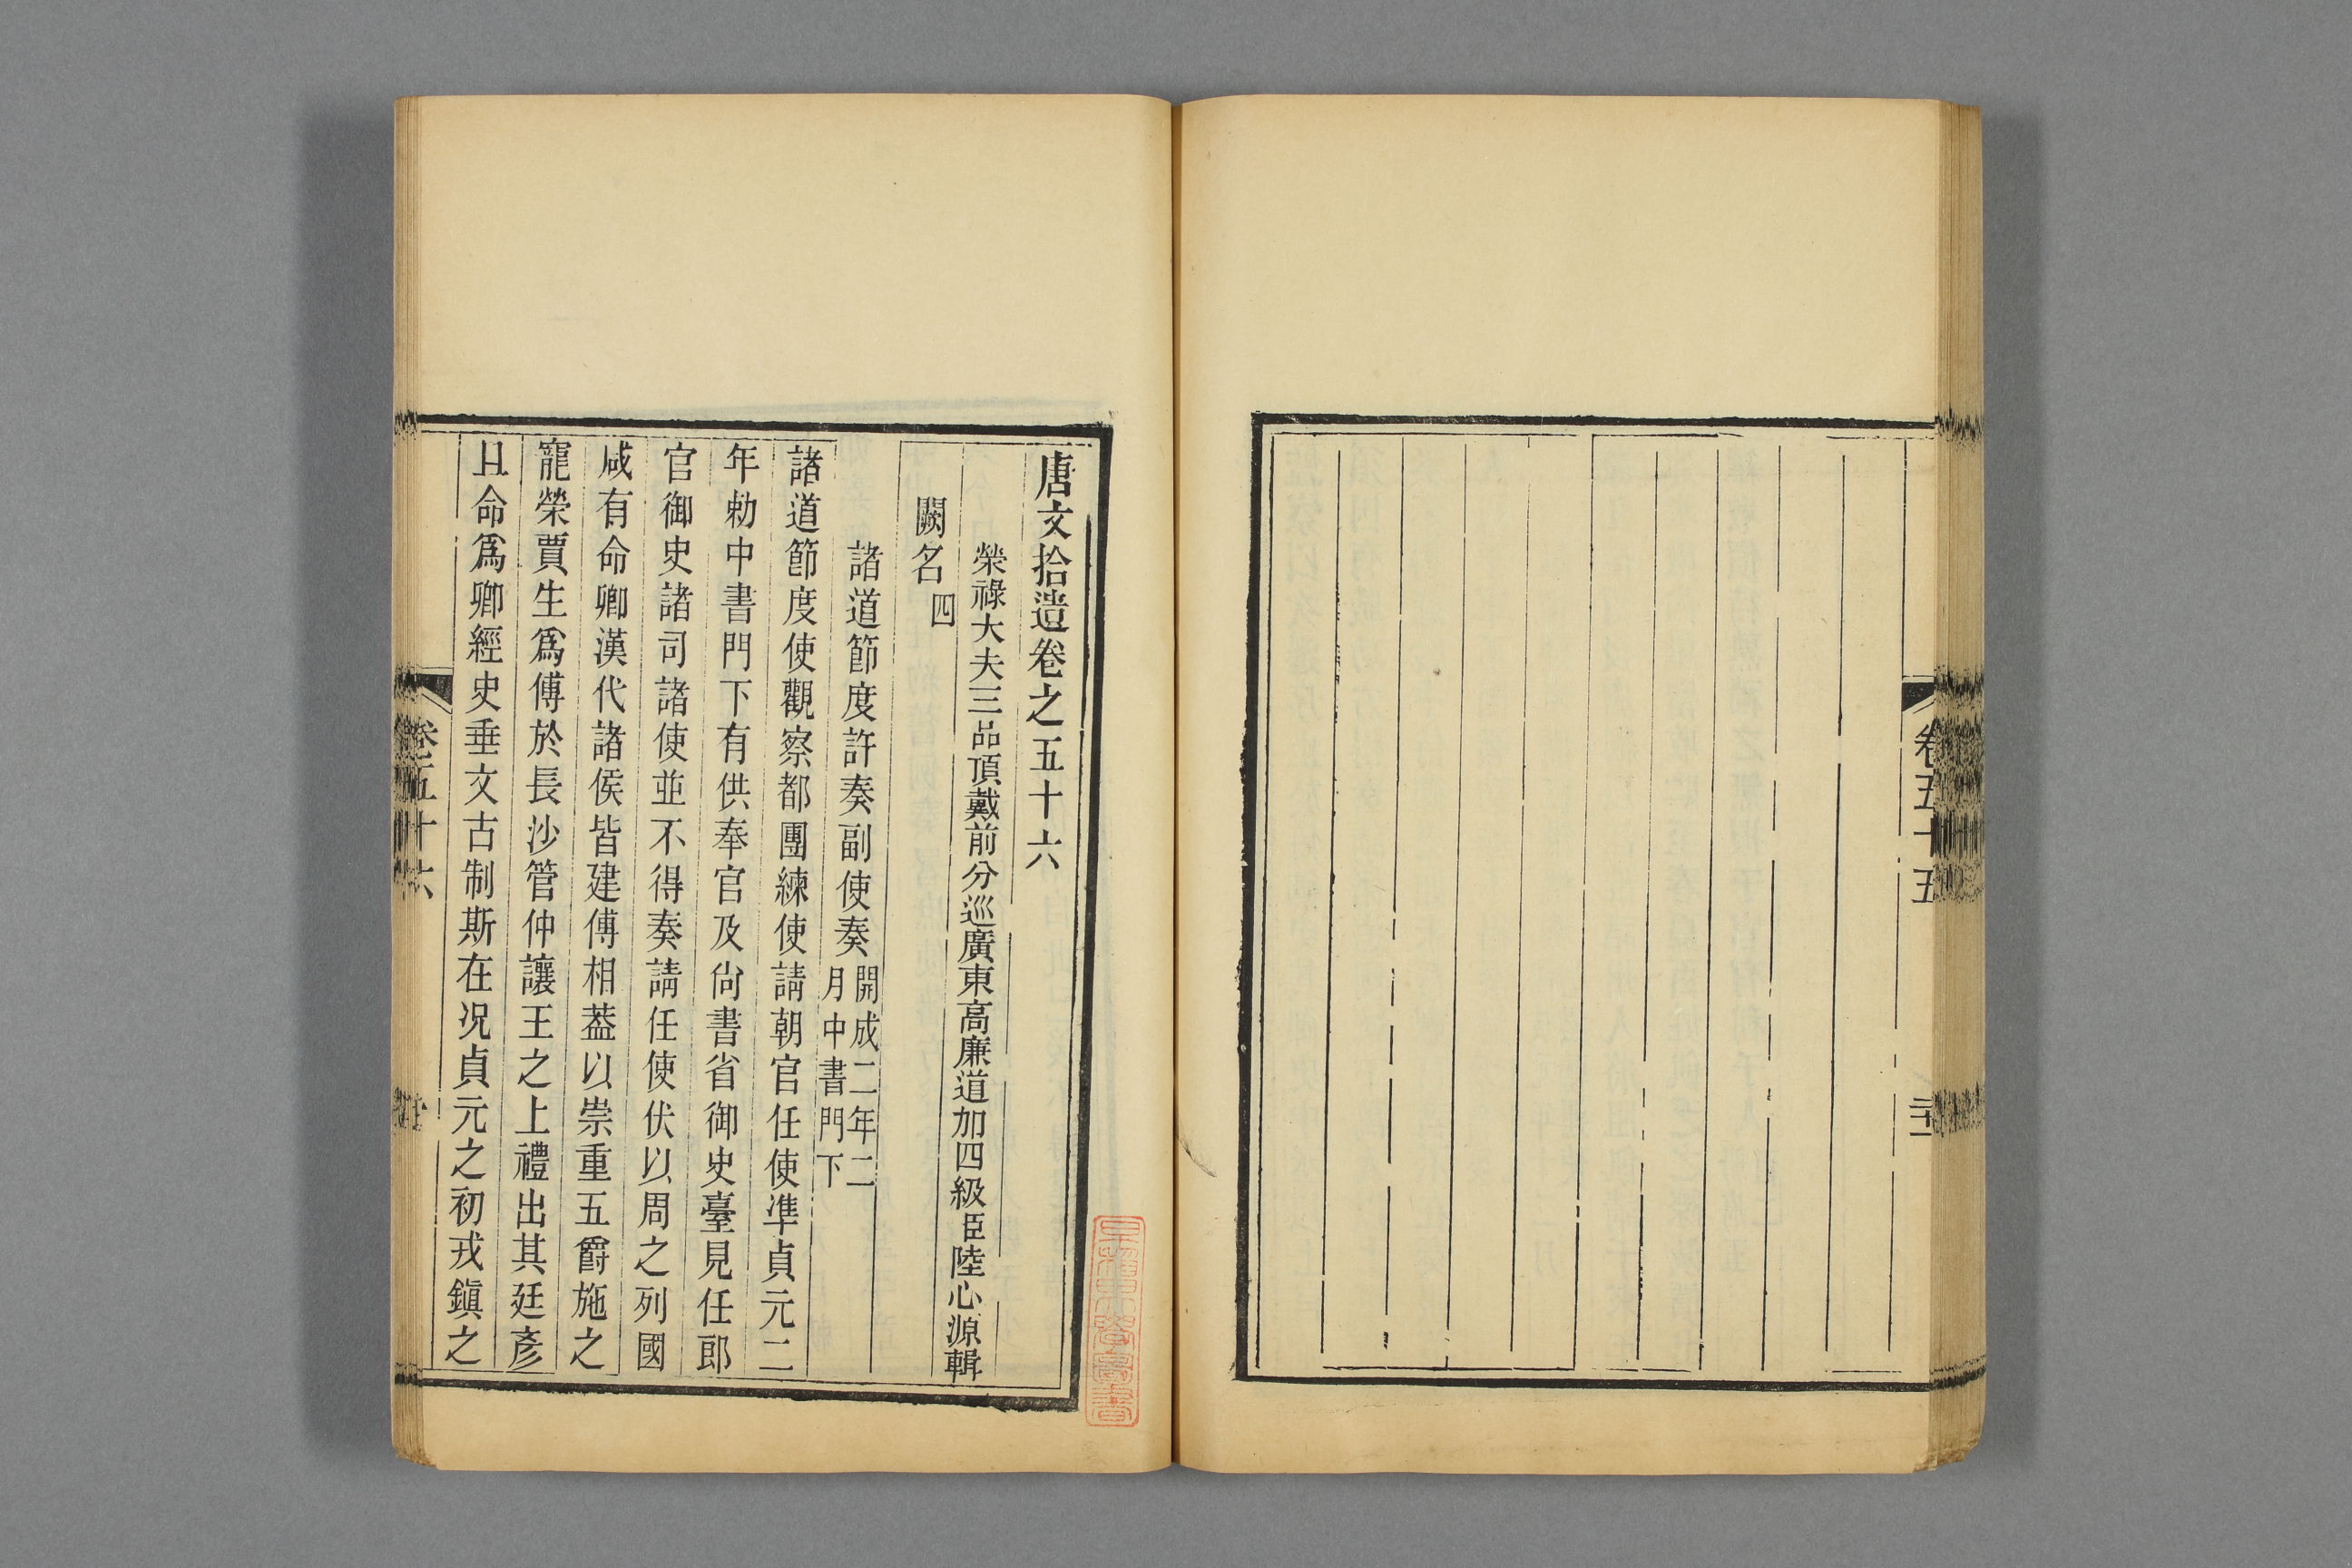 卷五十五
唐文拾遺卷之五十六
榮祿大夫三品頂戴前分巡廣東高廉道加四級臣陸心源輯
闕名四
諸道節度許奏副使奏開成二年二月中書門下
諸道節度使觀察都團練使請朝官任使準貞元二
年勅中書門下有供奉官及尙書省御史臺見任郎
官御史諸司諸使並不得奏請任使伏以周之列國
咸有命卿漢代諸侯皆建傅相葢以崇重五爵施之
寵榮賈生爲傅於長沙管仲讓王之上禮出其廷彥
且命爲卿經史垂文古制斯在况貞元之初戎鎭之
卷五十六